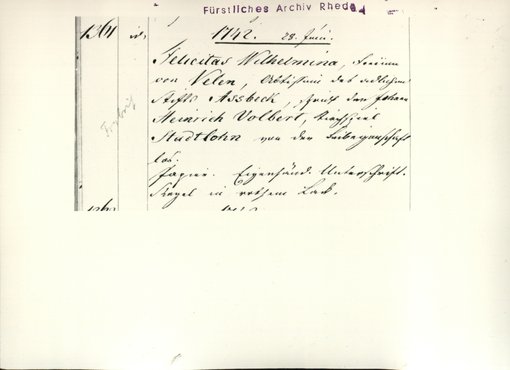 Fürstliches Archiv Rhede
1361 1742. 28. Juni.
Felicitas Wilhelmina, Freiinn
von Velen, Äbtissinn des adlichen
Stifts Assbeck, spricht den Johann
Heinrich Volbert, Kirchspiel
Stadtlohn von der Leibeigenschaft
los.
Papier. Eigenhänd. Unterschrift.
Siegel in rothem Lack.
Freibrief